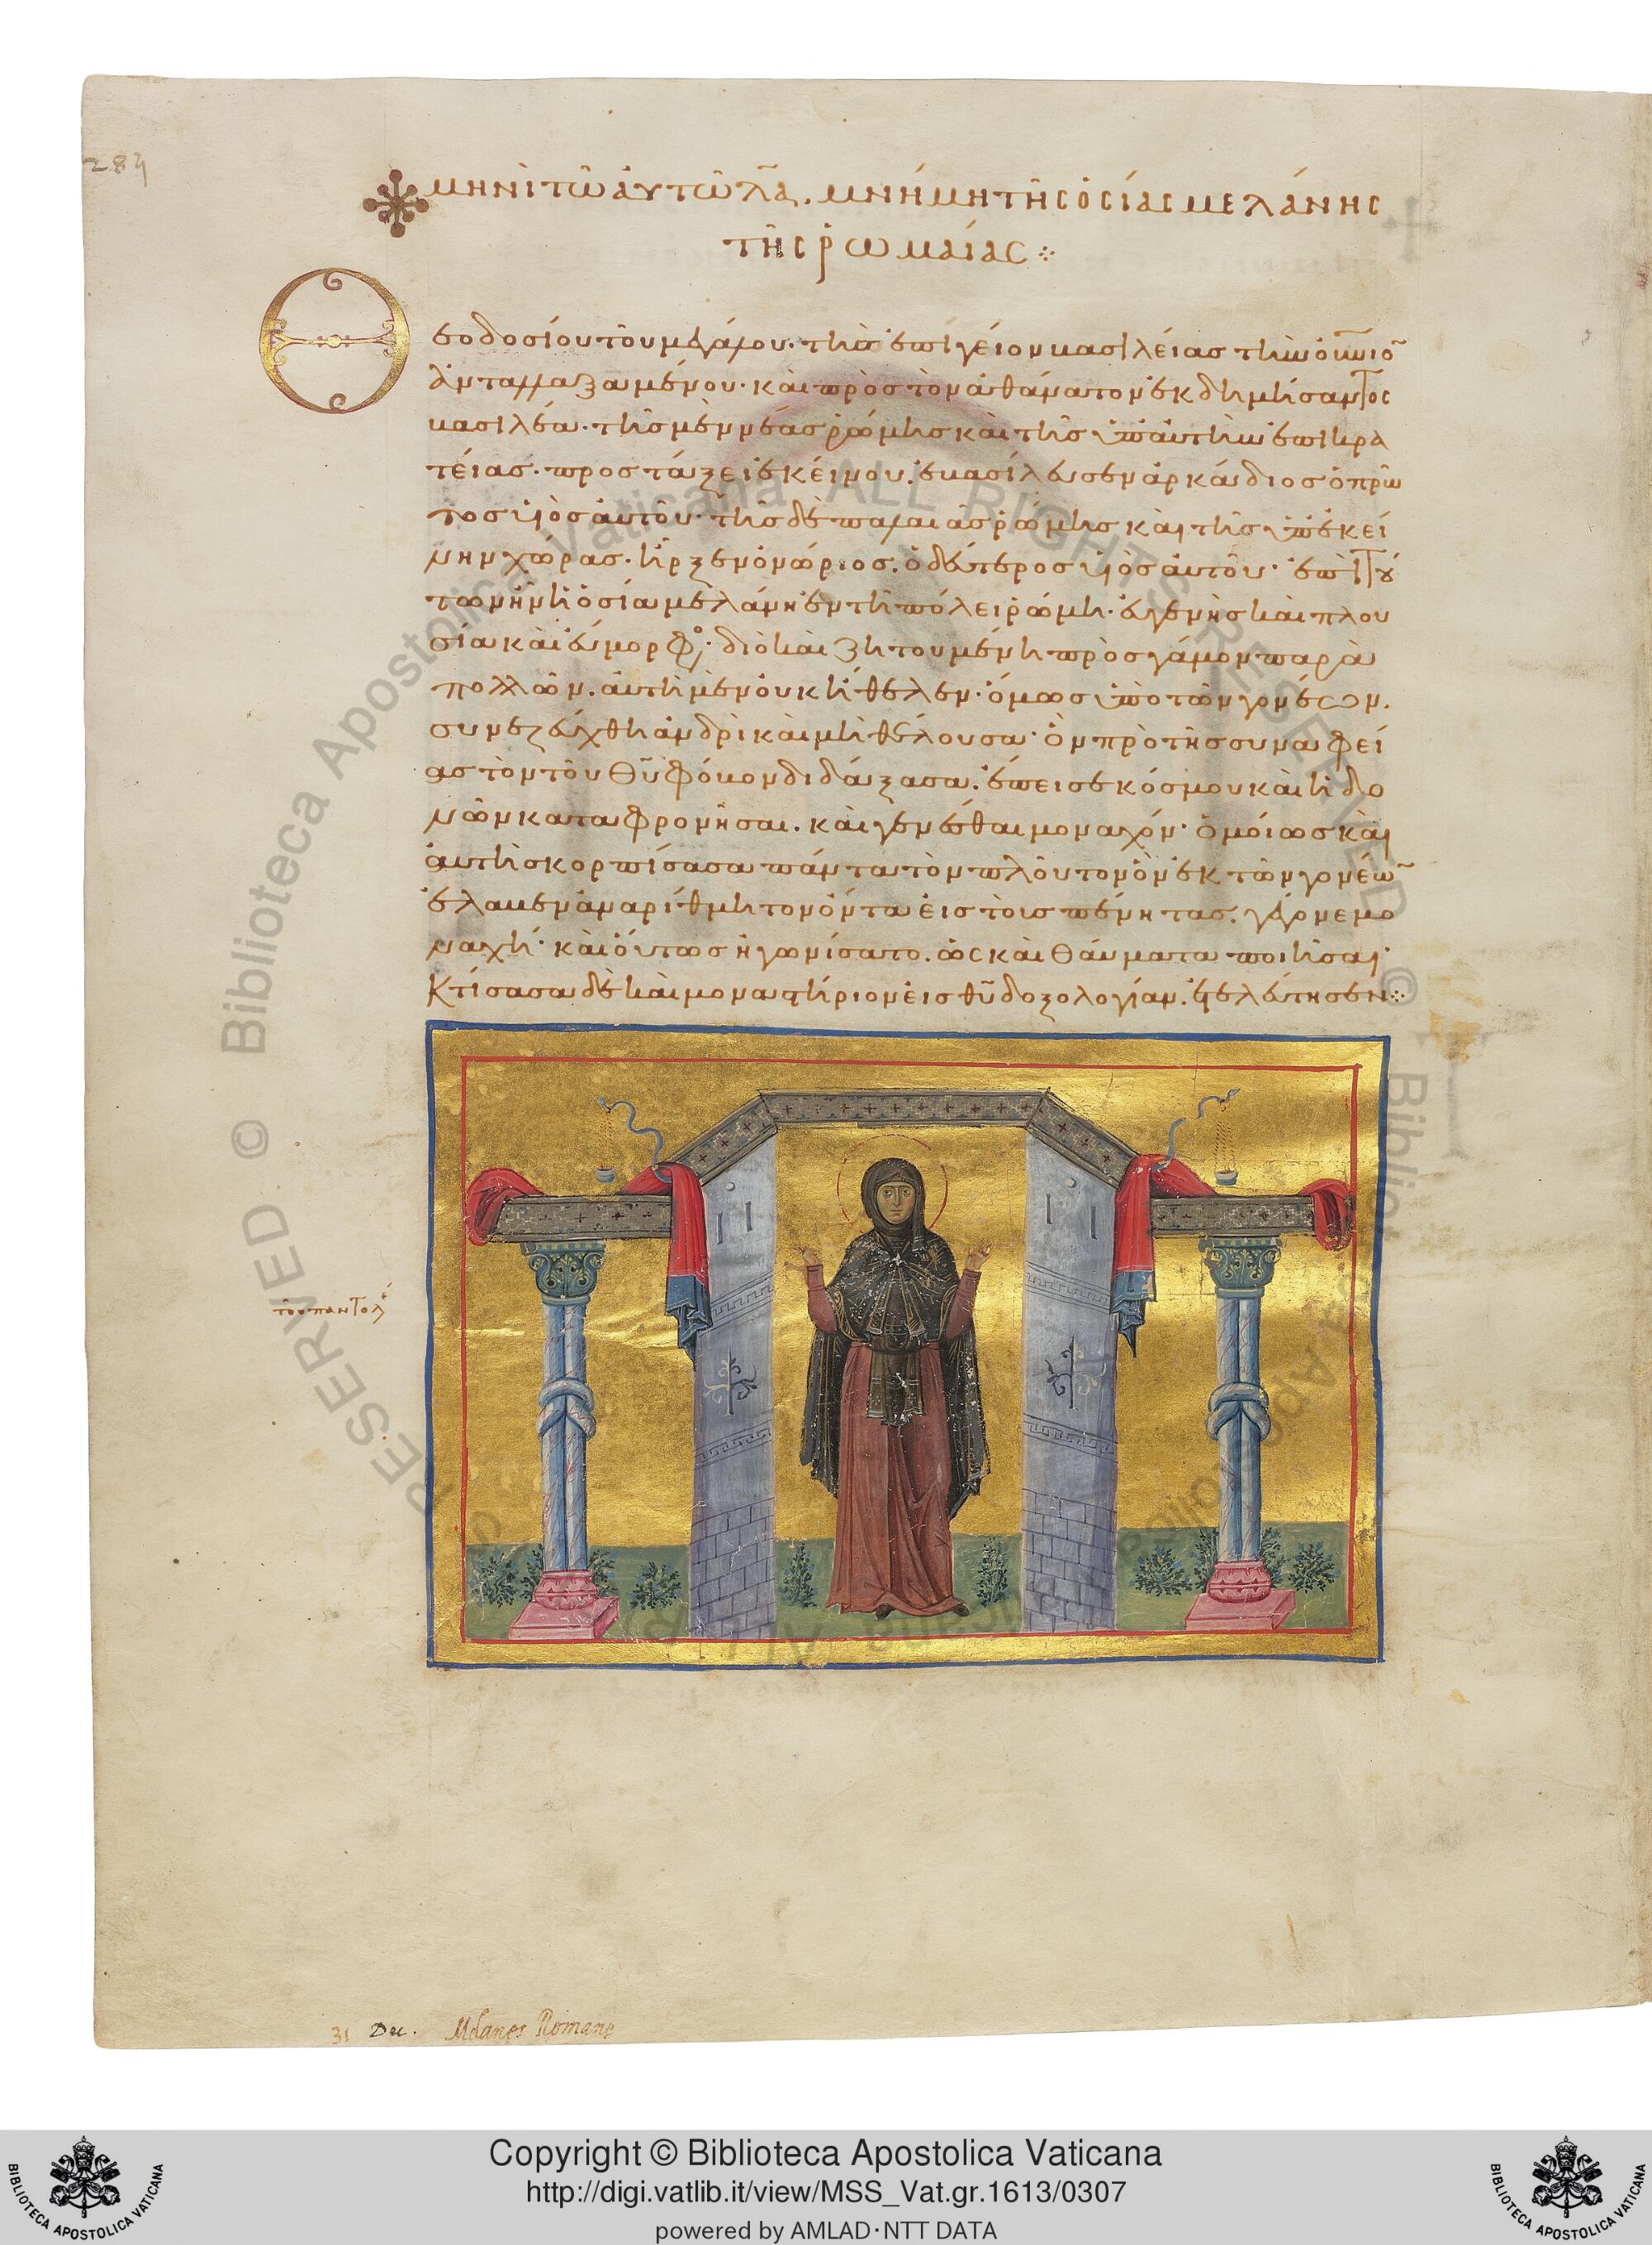 289
μηνὶ τῶ ἀυτῶ λα. μνήμη τῆς ὁσίας μελάνης
τῆς ῥωμαίας
Θεοδοσίου τοῦ μεγάλου· τὴν ἐπίγειον βασιλείας
ἀνταλλαξαμένου· καὶ πρὸς τὸν ἀθάνατον ἐκδημήσαντος
βασιλέα· τῆς μὲν νέας ῥώμης καὶ τῆς ὑπ' αὐτὴν ἐπικρα
τείας· προστάξει ἐκείνου. ἐβασίλευσεν ἀρκάδιος ὁ πρῶ
τος υἱὸς αὐτοῦ· τῆς δὲ παλαιᾶς ῥώμης καὶ τῆς ὑπ' ἐκεί
νην χώρας· ἦρξεν ὁνώριος. ὁ δεύτερος υἱὸς αὐτοῦ· ἐπὶ τού
των ἦν ἡ ὁσία μελάνη ἐν τῆ πόλει ῥώμη· εὐγενὴς καὶ πλου
σία καὶ εὔμορφος· διὸ καὶ ζητουμένη πρὸς γάμον παρὰ
πολλῶν. αὐτὴ μὲν οὐκ ἤθελεν· ὅμως ὑπὸ τῶν γονέων.
συνεζεύχθη ἀνδρὶ καὶ μὴ θέλουσα· ὃν πρὸ τῆς συναφεί
ας τὸν τοῦ θυ φόβον διδάξασα. ἔπεισε κόσμου καὶ ἡδο
νῶν καταφρονῆσαι. καὶ γενέσθαι μοναχόν· ὁμοίως καὶ
αὐτὴ σκορπίσασα πάντα τὸν πλοῦτον ὃν ἐκ τῶν γονέων
ἔλαβεν ἀναρίθμητον ὄντα εἰς τοὺς πένητας. γέγονε μο
ναχή· καὶ οὕτως ἠγωνίσατο. ὡς καὶ θαύματα ποιῆσαι·
Κτίσασα δὲ καὶ μοναστήριον εἰς θυ δοξολογίαν. ἐτελεύτησεν
τοῦ παντολ
31 Dec. Melanes Romane
© Biblioteca Apostolica Vaticana ALL RIGHTS RESERVED
Copyright © Biblioteca Apostolica Vaticana
http://digi.vatlib.it/view/MSS_Vat.gr.1613/0307
powered by AMLAD·NTT DATA
BIBLIOTECA APOSTOLICA VATICANA
BIBLIOTECA APOSTOLICA VATICANA